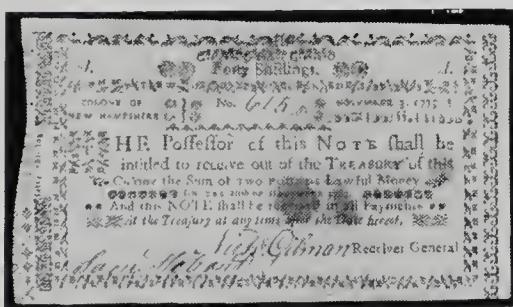 Forty Shillings.
COLONY OF No. 615 NOVEMBER 3, 1775
NEW HAMPSHIRE
THE Poſſeſſor of this NOTE ſhall be
intitled to receive out of the TREASURY of this
Colony the Sum of TWO Lawful Money
And this NOTE ſhall be received in all Payments
at the Treaſury at any time after the Date hereof.
Gilman Receiver General